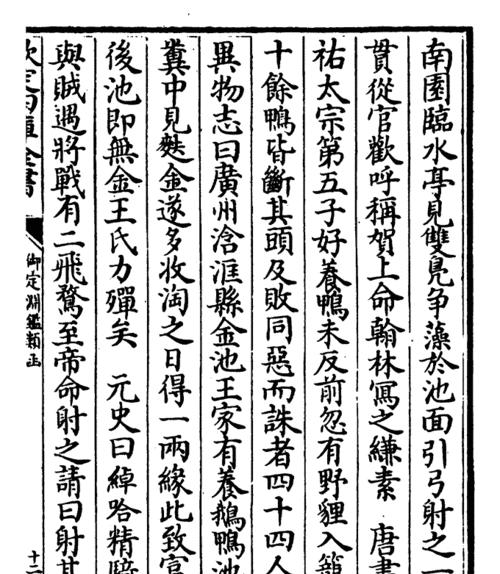 南園臨水亭見雙鳧争藻於池面引弓射之一
貫從官歡呼稱賀上命翰林冩之縑素　唐書
祐太宗第五子好養鴨未反前忽有野貍入籠
十餘鴨皆斷其頭及敗同惡而誅者四十四人
異物志曰廣州浛洭縣金池王家有養鵝鴨池
糞中見麩金遂多收淘之日得一兩緣此致
後池即無金王氏力殫矣　元史曰綽哈精騎
與賊遇將戰有二飛鶩至帝命射之請曰射其
欽定四庫全書
御定淵鑑類函
十二